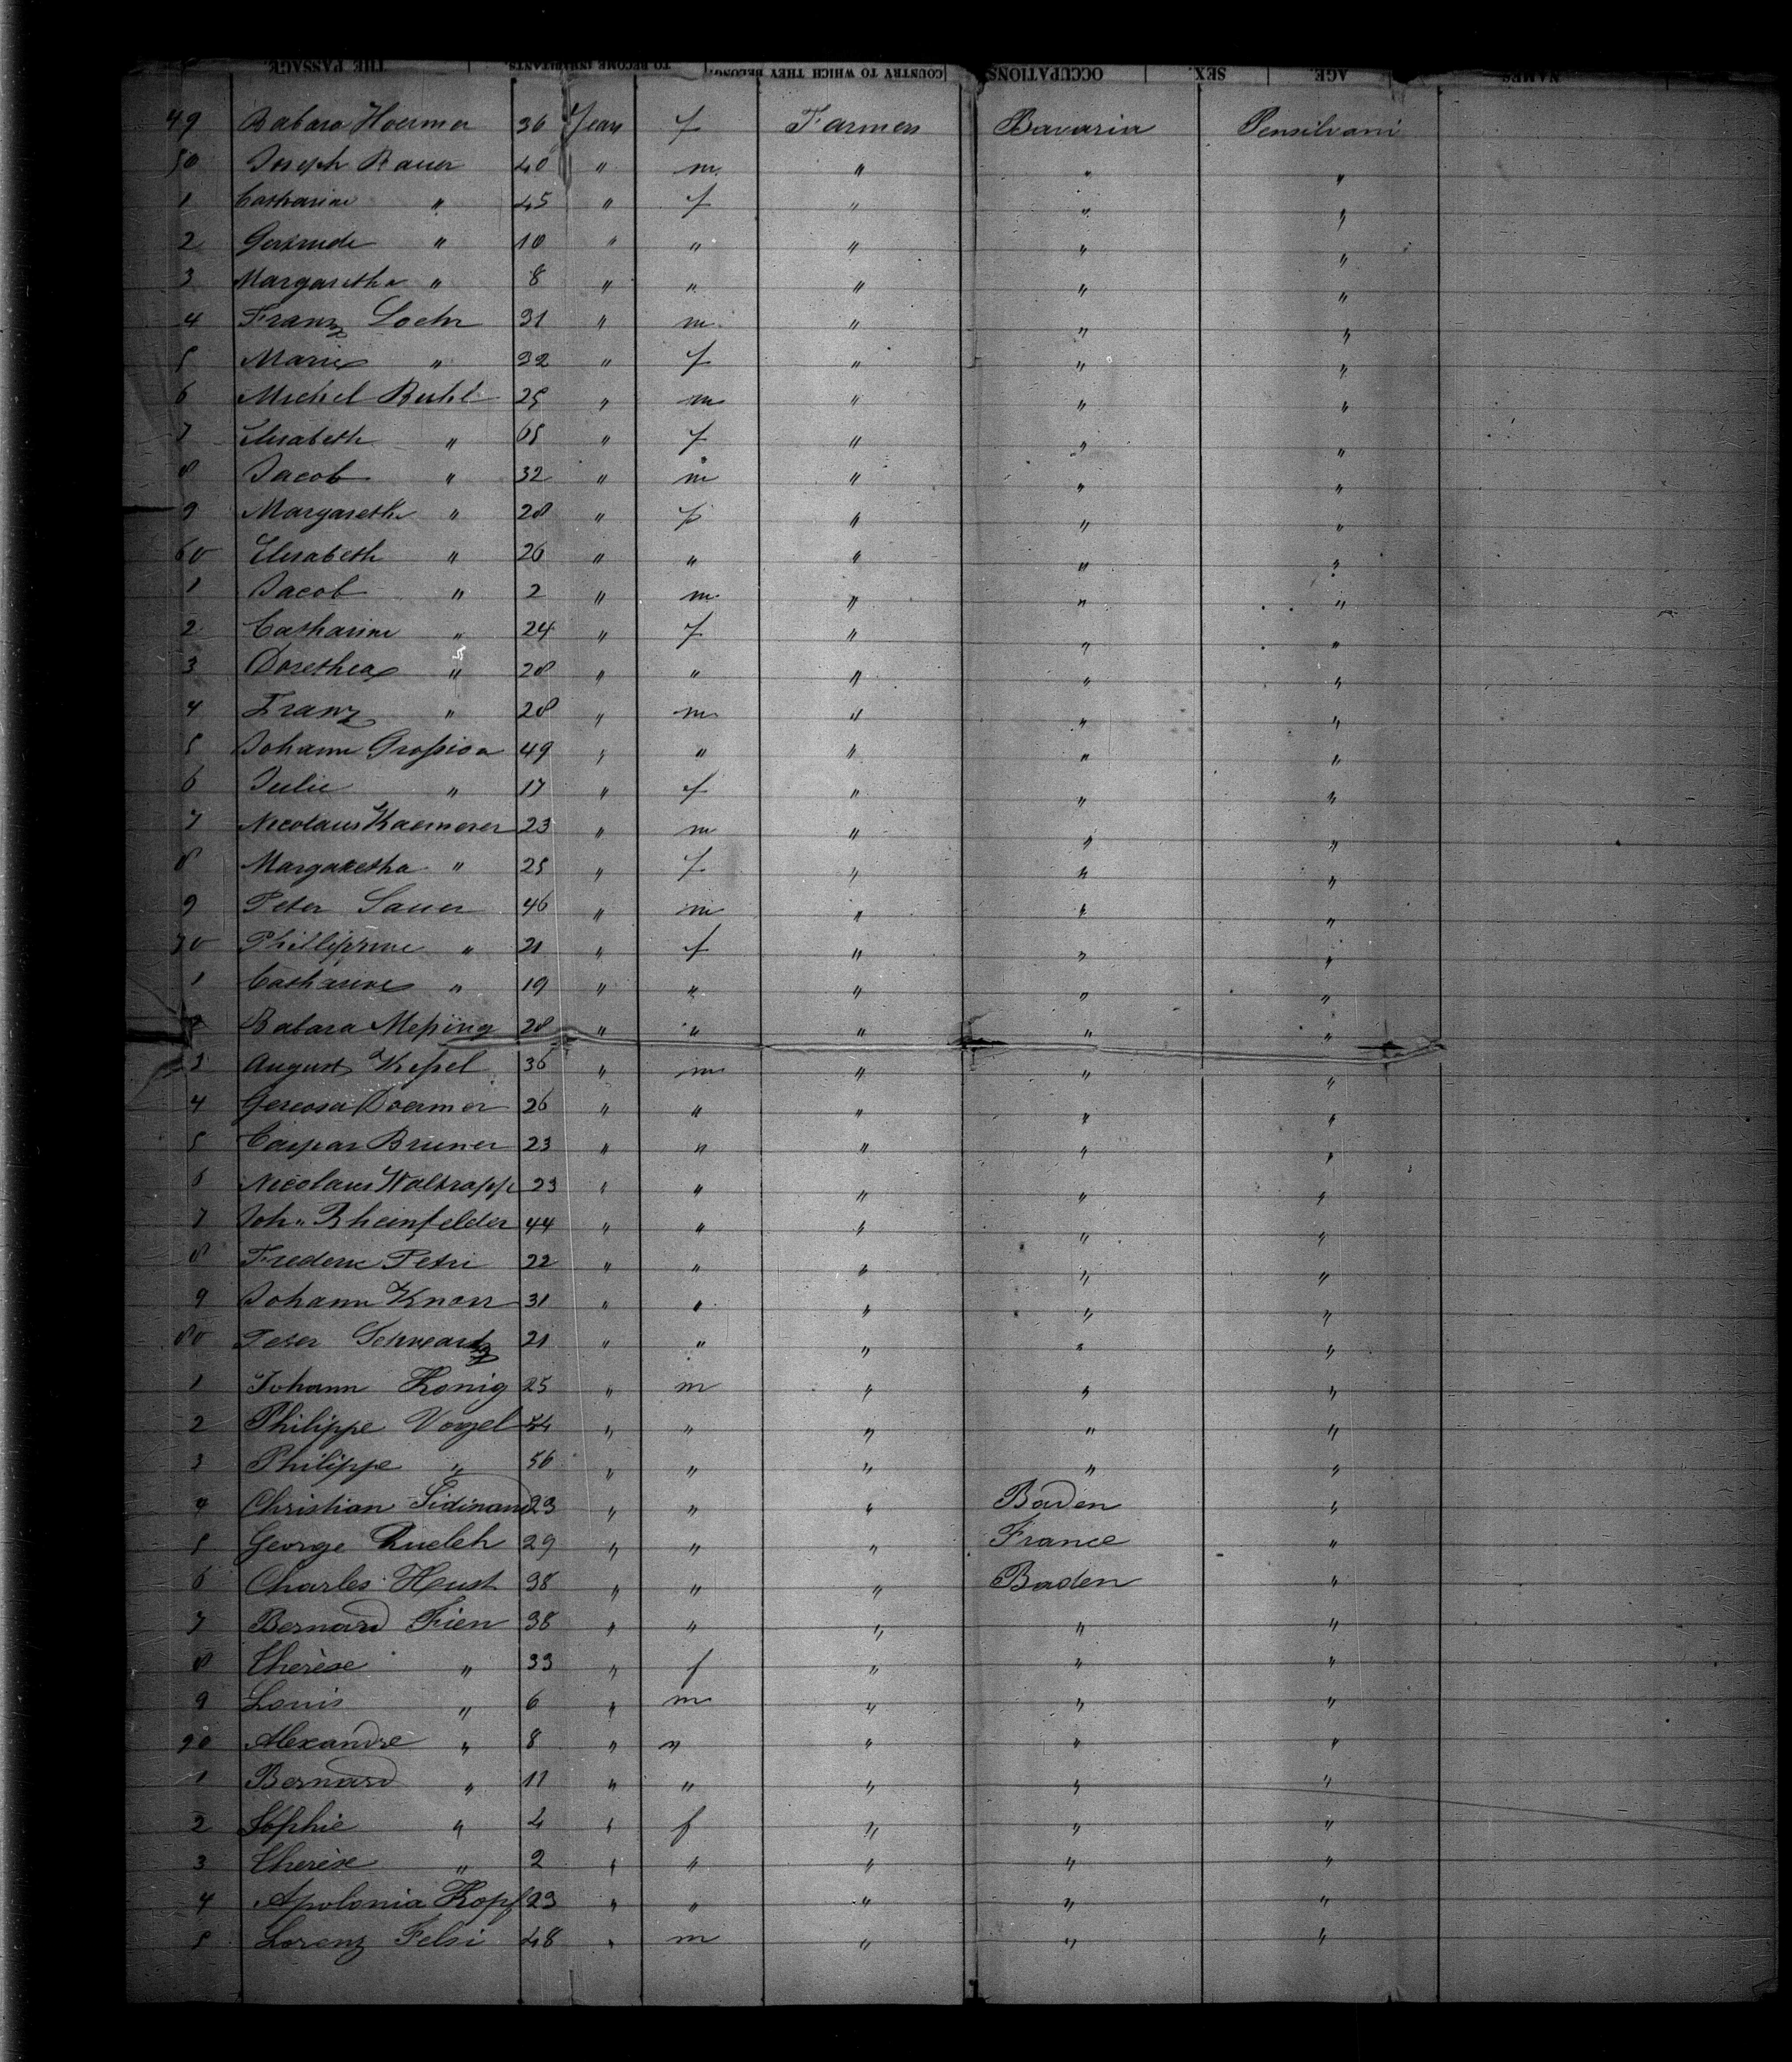 THE PASSAGE. TO BECOME INHABITANTS. COUNTRY TO WHICH THEY BELONG. OCCUPATIONS SEX. AGE. NAMES
49 Babara Hoermer 36 Years f Farmers Bavaria Pensilvani
50 Joseph Bauer 40 " m " " "
1 Catharine " 45 " f " " "
2 Gertrude " 10 " " " " "
3 Margaretha " 8 " " " " "
4 Franz Loehr 31 " m " " "
5 Marie " 32 " f " " "
6 Michel Ruhl 25 " m " " "
7 Elisabeth " 65 " f " " "
8 Jacob " 32 " m " " "
9 Margareth " 28 " f " " "
60 Elisabeth " 26 " " " " "
1 Jacob " 2 " m " " "
2 Catharine " 24 " f " " "
3 Dorethea " 28 " " " " "
4 Franz " 28 " m " " "
5 Johann 49 " " " " "
6 Julie " 17 " f " " "
7 Nicolaus Kaemerer 23 " m " " "
8 Margaretha " 25 " f " " "
9 Peter Sauer 46 " m " " "
70 Phillippine " 21 " f " " "
1 Catharine " 19 " " " " "
2 Babara Meßing 28 " " " " "
3 August Keßel 36 " m " " "
4 Doermer 26 " " " " "
5 Caspar Bruner 23 " " " " "
6 Nicolaus Waltrapp 23 " " " " "
7 Joh" Rheinfelder 44 " " " " "
8 Frederic Petri 22 " " " " "
9 Johann Knorr 31 " " " " "
80 Peter Schwartz 21 " " " " "
1 Johann Konig 25 " m " " "
2 Philippe Vogel 54 " " " " "
3 Philippe " 56 " " " " "
4 Christian 23 " " " Baden "
5 George 29 " " " France "
6 Charles Heust 38 " " " Baden "
7 Bernard Fien 38 " " " " "
8 Therèse " 33 " f " " "
9 Louis " 6 " m " " "
90 Alexandre " 8 " " " " "
1 Bernard " 11 " " " " "
2 Sophie " 4 " f " " "
3 Therèse " 2 " " " " "
4 Apolonia Kopf 23 " " " " "
5 Lorenz Felsi 48 " m " " "